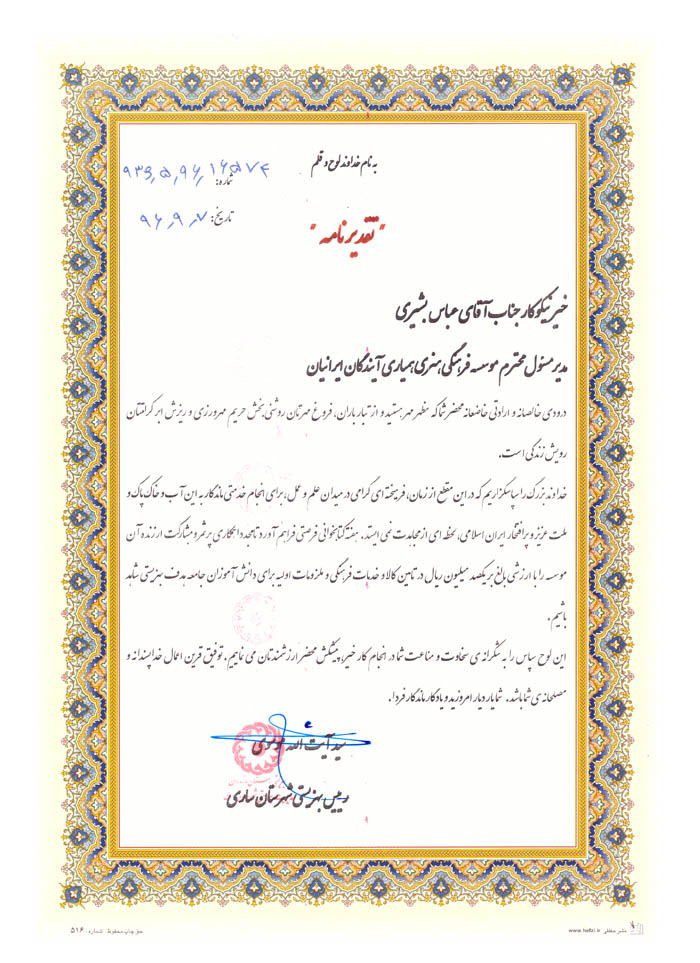 به نام خداوند لوح و قلم
شماره: ۹۳۶٫۵٫۹۶٫۱۶۵۷۴
تاریخ: ۹۶٫۹٫۷
"تقدیرنامه"
خیر نیکوکار جناب آقای عباس بشیری
مدیر مسئول محترم موسسه فرهنگی هنری همیاری آیندگان ایرانیان
درودی خالصانه و ارادتی خاضعانه محضر شما که مظهر مهر هستید و از تبار باران، فروغ مهرتان روشنی بخش حریم مهرورزی و ریزش ابر کرامتتان
رویش زندگی است.
خداوند بزرگ را سپاسگزاریم که در این مقطع از زمان، فریخته ای گرامی در میدان علم و عمل، برای انجام خدمتی ماندگار به این آب و خاک پاک و
ملت عزیز و پرافتخار ایران اسلامی، لحظه ای از مجاهدت نمی ایستد. هفته کتابخوانی فرصتی فراهم آورد تا مجددا همکاری پرثمر و مشارکت ارزنده آن
موسسه را با ارزشی بالغ بر یکصد میلیون ریال در تامین کالا و خدمات فرهنگی و ملزومات اولیه برای دانش آموزان جامعه هدف بهزیستی شاهد
باشیم.
این لوح سپاس را به شکرانه ی سخاوت و مناعت شما در انجام کار خیر، پیشکش محضر ارزشمندتان می نماییم. توفیق قرین اعمال خداپسندانه و
مصلحانه ی شما باشد. شما یار دیار امروزید و یادگار ماندگار فردا.
سید آیت الله موسوی
رییس بهزیستی شهرستان ساری
حق چاپ محفوظ . شماره ۵۱۶
نشر حفظی www.hefzi.ir